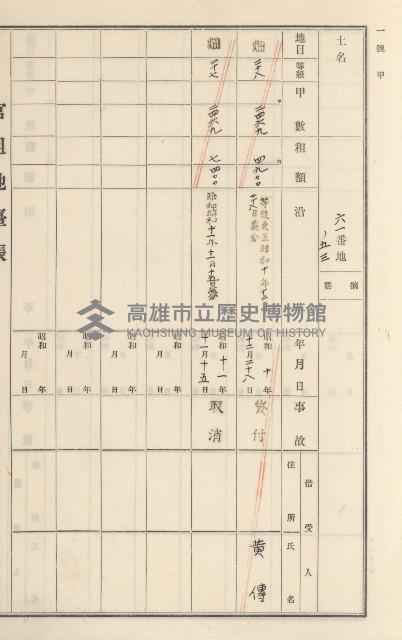 一號甲
土名
六一番地
ノ五三
摘要
地目
等級
甲數
租額
沿
年月日
事故
借受人
住所
氏名
畑
二十八
二四六九
四九〇〇
等級更正昭和十年十二月
二十八日處分
昭和十年
十二月二十八日
貸付
黃傳
畑
二十七
二四六九
七四〇〇
除租昭和十一年十一月十五日處分
昭和十一年
十一月十五日
取消
昭和 年
月 日
昭和 年
月 日
昭和 年
月 日
昭和 年
月 日
官租地臺帳
高雄市立歷史博物館
KAOHSIUNG MUSEUM OF HISTORY